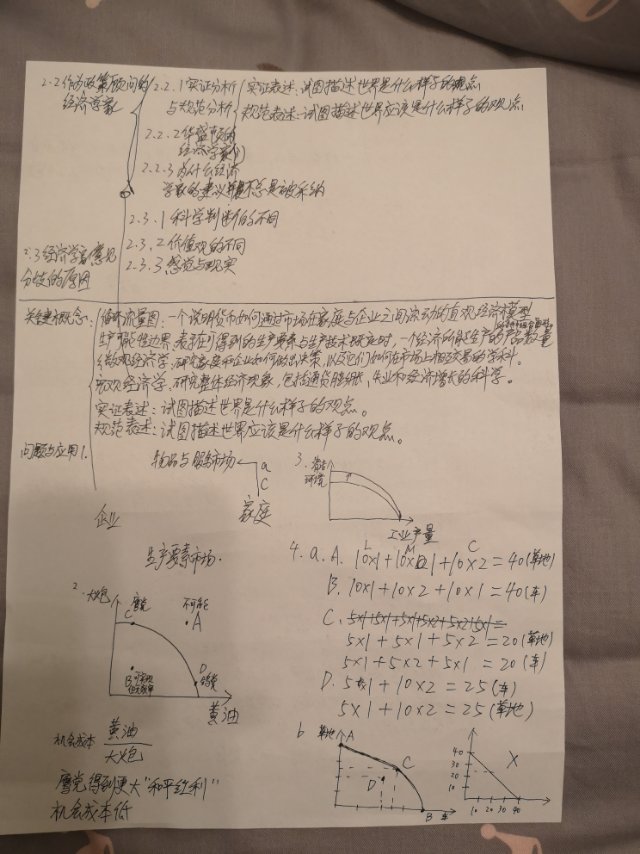 2.2 作为政策顾问的
经济学家
2.2.1 实证分析
与规范分析
实证表述：试图描述世界是什么样子的观点
规范表述：试图描述世界应该是什么样子的观点
2.2.2 华盛顿的
经济学家们
2.2.3 为什么经济
学家的建议并不总是被采纳
2.3 经济学家意见
分歧的原因
2.3.1 科学判断的不同
2.3.2 价值观的不同
2.3.3 感觉与现实
关键概念：
循环流量图：一个说明货币如何通过市场在家庭与企业之间流动的直观经济模型
生产可能性边界：表示可得到的生产要素与生产技术既定时，一个经济所能生产的产品数量
微观经济学：研究家庭和企业如何做出决策，以及它们如何在市场上相互交易的学科。
宏观经济学：研究整体经济现象，包括通货膨胀、失业和经济增长的科学。
实证表述：试图描述世界是什么样子的观点。
规范表述：试图描述世界应该是什么样子的观点。
问题与应用1.
物品与服务市场
a
C
企业
家庭
生产要素市场.
2.
大炮
鹰党
不可能
C
A
B
D
鸽党
黄油
机会成本
黄油
大炮
鹰党得到更大“和平红利”
机会成本低
3.
环境
工业产量
L M C
4. a. A. 10x1+10x1+10x2=40(草地)
B. 10x1+10x2+10x1=40(车)
C. 5x1+5x1+5x2=20(草地)
5x1+5x2+5x1=20(车)
D. 5x1+10x2=25(车)
5x1+10x2=25(草地)
b
草地
A
C
D
B 车
40
30
20
X
10 20 30 40